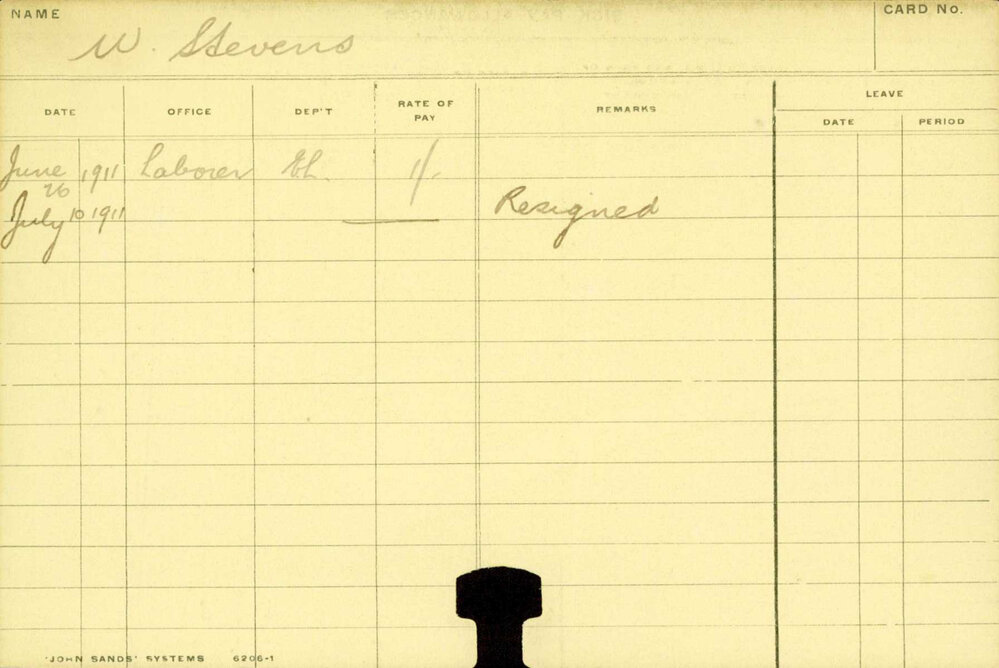 NAME
CARD No.
W. Stevens
DATE OFFICE DEP'T RATE OF PAY REMARKS LEAVE
DATE PERIOD
June 26 1911 Laborer 1/-
July 10 1911 Resigned
'JOHN SANDS' SYSTEMS 6206-1